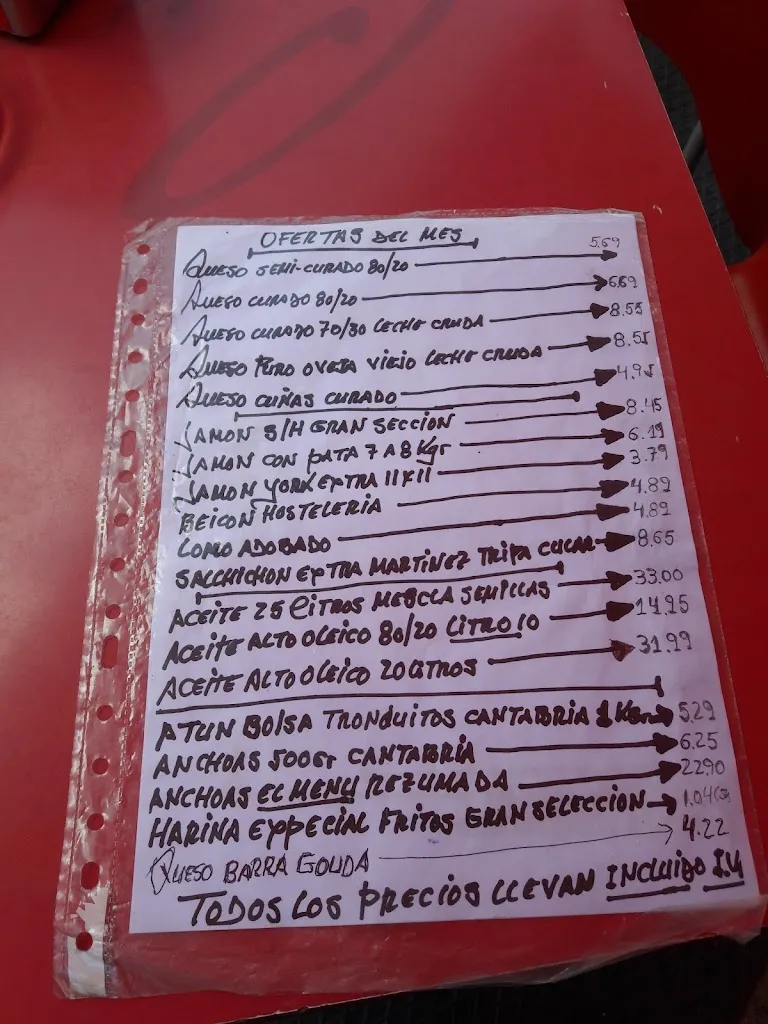 OFERTAS DEL MES
QUESO SEMI-CURADO 80/20 5.69
QUESO CURADO 80/20 6.69
QUESO CURADO 70/30 LECHE CRUDA 8.55
QUESO PURO OVEJA VIEJO LECHE CRUDA 8.55
QUESO CUÑAS CURADO 4.95
JAMON S/H GRAN SECCION 8.45
JAMON CON PATA 7 A 8 Kgr 6.19
JAMON YORK EXTRA 11X11 3.79
BEICON HOSTELERIA 4.89
LOMO ADOBADO 4.89
SALCHICHON EXTRA MARTINEZ TRIPA CULAR 8.65
ACEITE 25 LITROS MEZCLA SEMILLAS 33.00
ACEITE ALTO OLEICO 80/20 LITRO 10 14.95
ACEITE ALTO OLEICO 20 LITROS 31.99
ATUN BOLSA TRONQUITOS CANTABRIA 1 Kgr 5.29
ANCHOAS 500Gr CANTABRIA 6.25
ANCHOAS EL MENU REZUMADA 22.90
HARINA EXPECIAL FRITOS GRAN SELECCION 1.04
QUESO BARRA GOUDA 4.22
TODOS LOS PRECIOS LLEVAN INCLUIDO